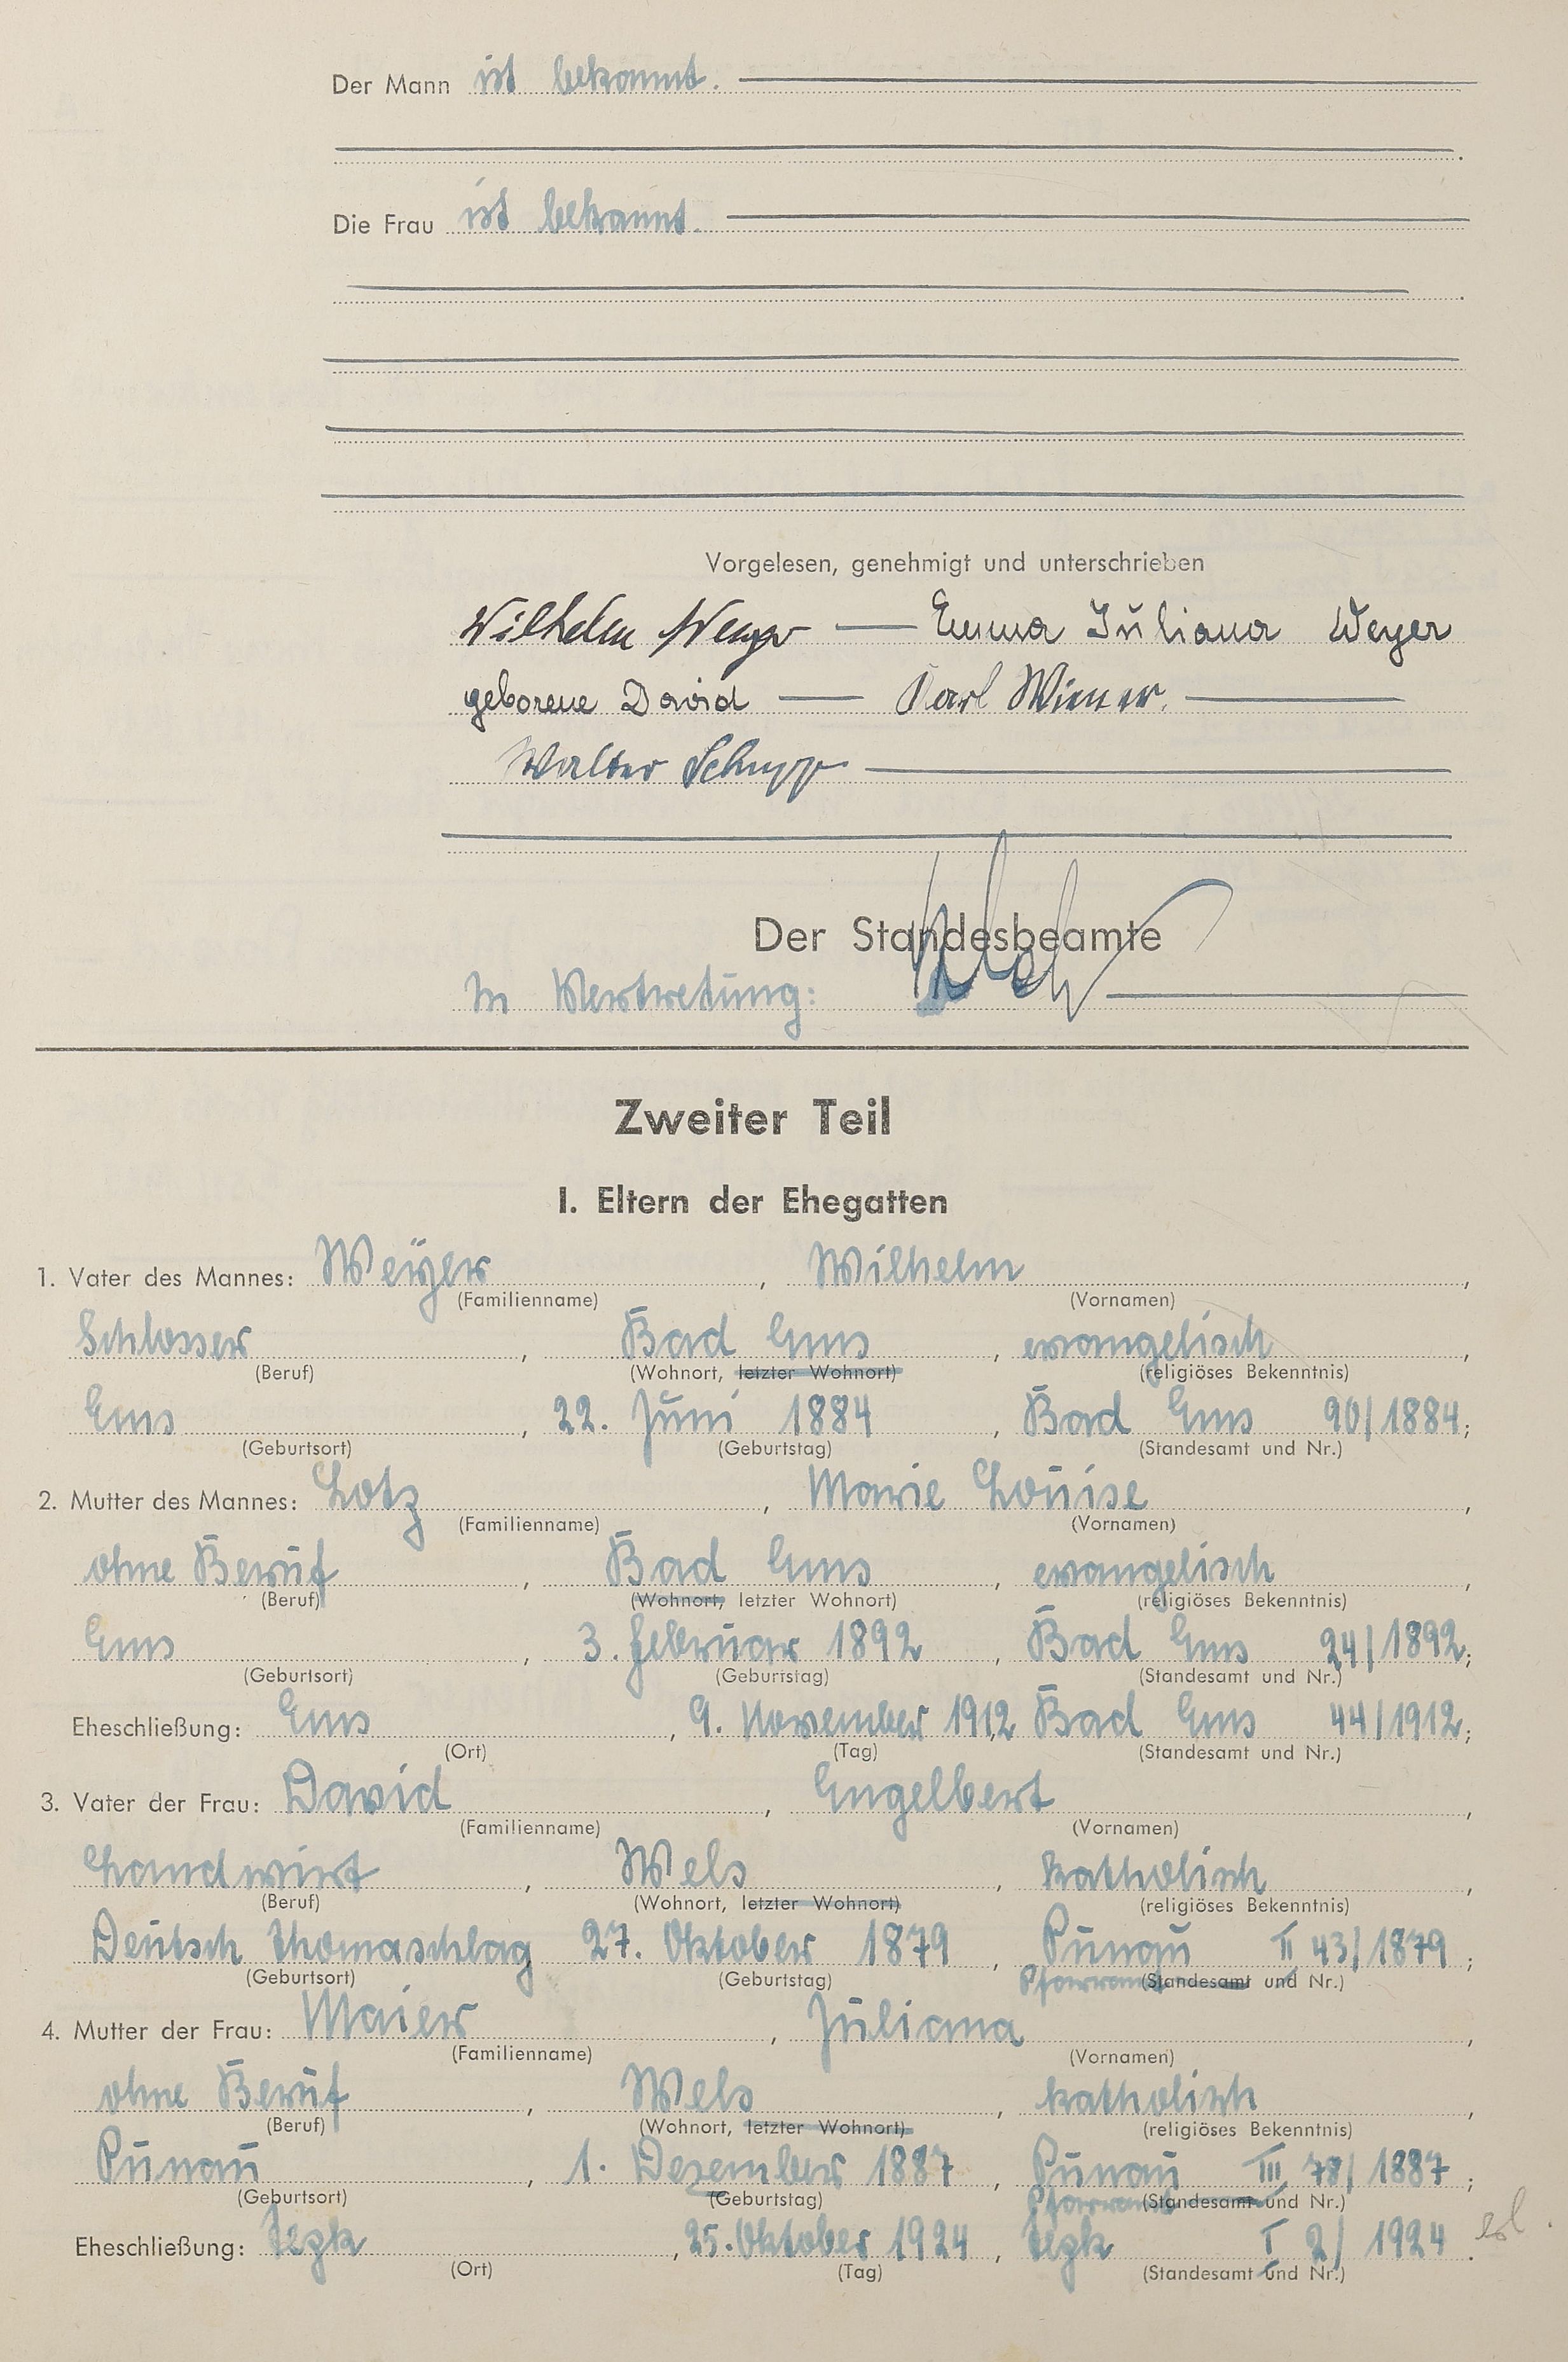 Der Mann ist bekannt.
Die Frau ist bekannt.
Vorgelesen, genehmigt und unterschrieben
Wilhelm Weyer — Emma Juliana Weyer
geborene David — Karl Wiemer. —
Walter Schupp —
Der Standesbeamte
In Vertretung:
Zweiter Teil
I. Eltern der Ehegatten
1. Vater des Mannes: Weyer, Wilhelm,
(Familienname) (Vornamen)
Schlosser, Bad Ems, evangelisch,
(Beruf) (Wohnort, letzter Wohnort) (religiöses Bekenntnis)
Ems, 22. Juni 1884, Bad Ems 90/1884;
(Geburtsort) (Geburtstag) (Standesamt und Nr.)
2. Mutter des Mannes: Lotz, Marie Louise,
(Familienname) (Vornamen)
ohne Beruf, Bad Ems, evangelisch,
(Beruf) (Wohnort, letzter Wohnort) (religiöses Bekenntnis)
Ems, 3. Februar 1892, Bad Ems 24/1892;
(Geburtsort) (Geburtstag) (Standesamt und Nr.)
Eheschließung: Ems, 9. November 1912, Bad Ems 44/1912;
(Ort) (Tag) (Standesamt und Nr.)
3. Vater der Frau: David, Engelbert,
(Familienname) (Vornamen)
Landwirt, Wels, katholisch,
(Beruf) (Wohnort, letzter Wohnort) (religiöses Bekenntnis)
Deutsch Thomaschlag 27. Oktober 1879, Punau II 43/1879;
(Geburtsort) (Geburtstag) Pfarramt (Standesamt und Nr.)
4. Mutter der Frau: Maier, Juliana,
(Familienname) (Vornamen)
ohne Beruf, Wels, katholisch,
(Beruf) (Wohnort, letzter Wohnort) (religiöses Bekenntnis)
Punau, 1. Dezember 1887, Punau III 78/1887;
(Geburtsort) (Geburtstag) Pfarramt (Standesamt und Nr.)
Eheschließung: Tezk, 25. Oktober 1924, Tezk I 2/1924.
(Ort) (Tag) (Standesamt und Nr.)